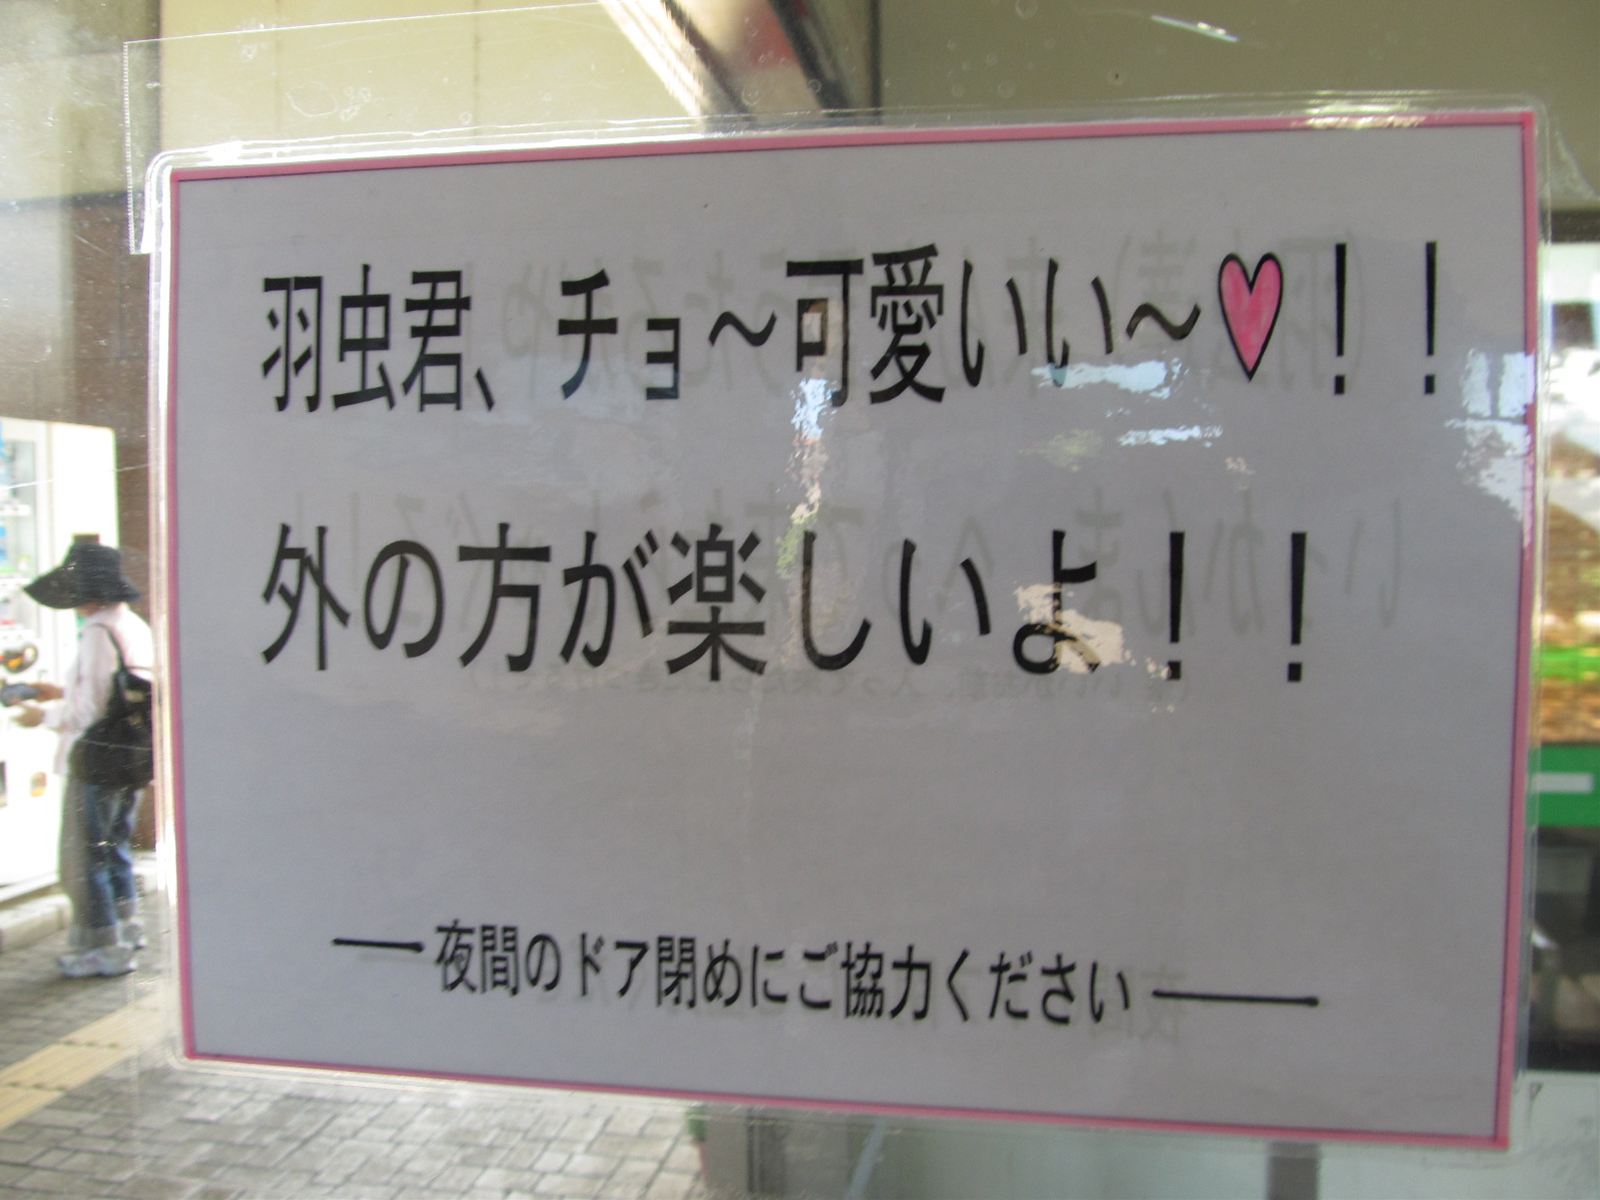 羽虫君、チョ〜可愛いい〜♥！！
外の方が楽しいよ！！
―夜間のドア閉めにご協力ください――